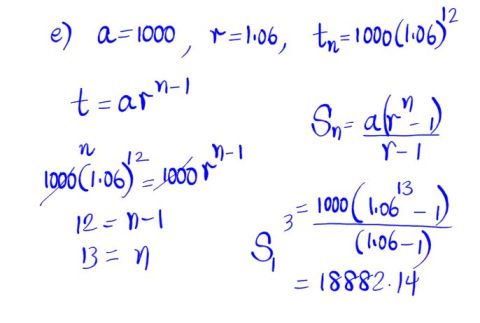 e) a=1000, r=1.06, tn=1000(1.06)^12
t=ar^n-1
n
1000(1.06)^12=1000r^n-1
12=n-1
13=n
Sn=a(r^n-1)
r-1
S13=1000(1.06^13-1)
(1.06-1)
=18882.14